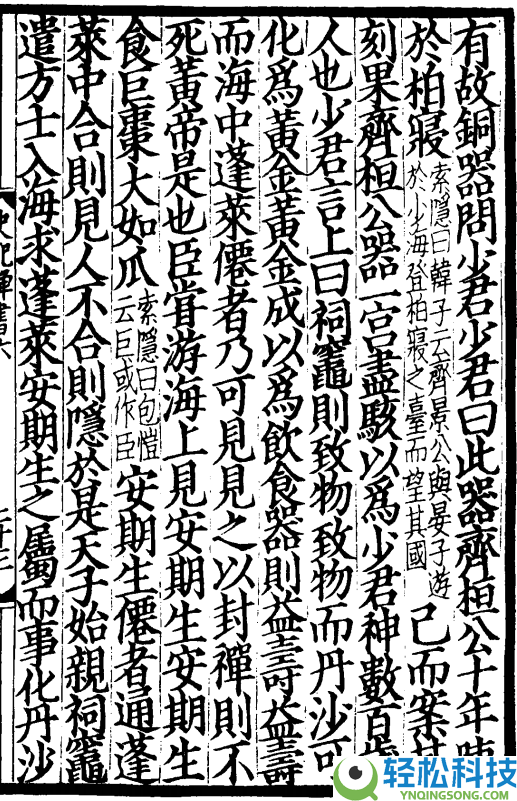 有故銅器問少君少君曰此器齊桓公十年陳
於柏寢
索隱曰韓子云齊景公與晏子遊
於少海登柏寢之臺而望其國
已而案其
刻果齊桓公器一宫盡駭以爲少君神數百歲
人也少君言上曰祠竈則致物致物而丹沙可
化爲黃金黃金成以爲飲食器則益壽益壽
而海中蓬萊僊者乃可見見之以封禪則不
死黃帝是也臣甞游海上見安期生安期生
食巨棗大如瓜
索隱曰包愷
云巨或作臣
安期生僊者通蓬
萊中合則見人不合則隱於是天子始親祠竈
遣方士入海求蓬萊安期生之屬而事化丹沙
轻松科技
YNQINGSONG.COM